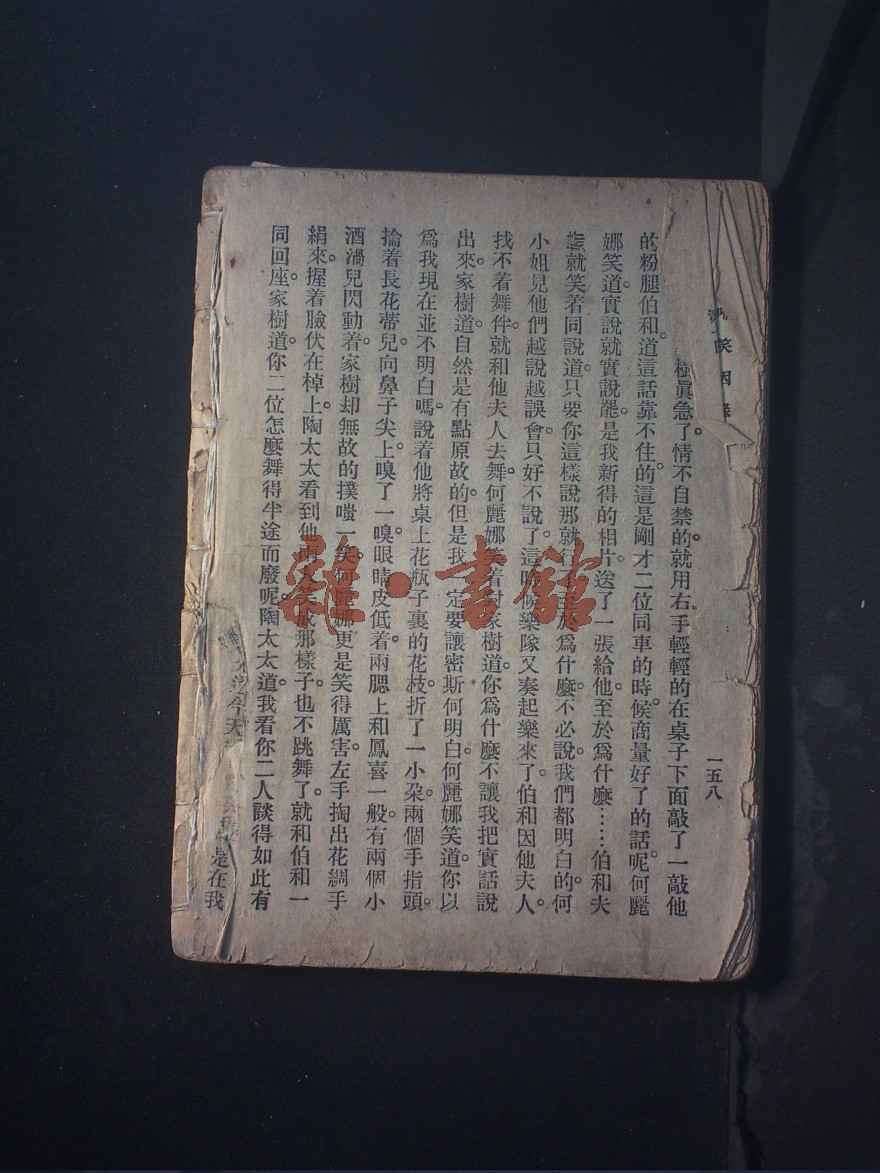 笑因
一五八
樹眞急了。情不自禁的。就用右手輕輕的在桌子下面敲了一敲他
的粉腿。伯和道。這話靠不住的。這是剛才二位同車的時候。商量好了的話呢。何麗
娜笑道。實說就實說罷。是我新得的相片。送了一張給他。至於爲什麼……伯和夫
就笑着同說道。只要你這樣說那就行了。至於爲什麼。不必說。我們都明白的。何
小姐見他們越說越誤會。只好不說了。這時候樂隊又奏起樂來了。伯和因他夫人。
找不着舞伴。就和他夫人去舞。何麗娜笑着對家樹道。你爲什麼不讓我把實話說
出來。家樹道。自然是有點原故的。但是我一定要讓密斯何明白。何麗娜笑道。你以
爲我現在並不明白嗎。說着他將桌上花瓶子裏的花枝折了一小朶。兩個手指頭。
掄着長花蒂兒。向鼻子尖上。嗅了一嗅。眼睛皮低着。兩腮上和鳳喜一般。有兩個小
酒渦兒閃動着。家樹却無故的撲嗤一笑。何麗娜更是笑得厲害。左手掏出花綢手
絹來。握着臉伏在棹上。陶太太看到他兩人笑成那樣子。也不跳舞了。就和伯和一
同回座。家樹道。你二位怎麼舞得半途而廢呢。陶太太道。我看你二人談得如此有
今天是在我
雜·書館